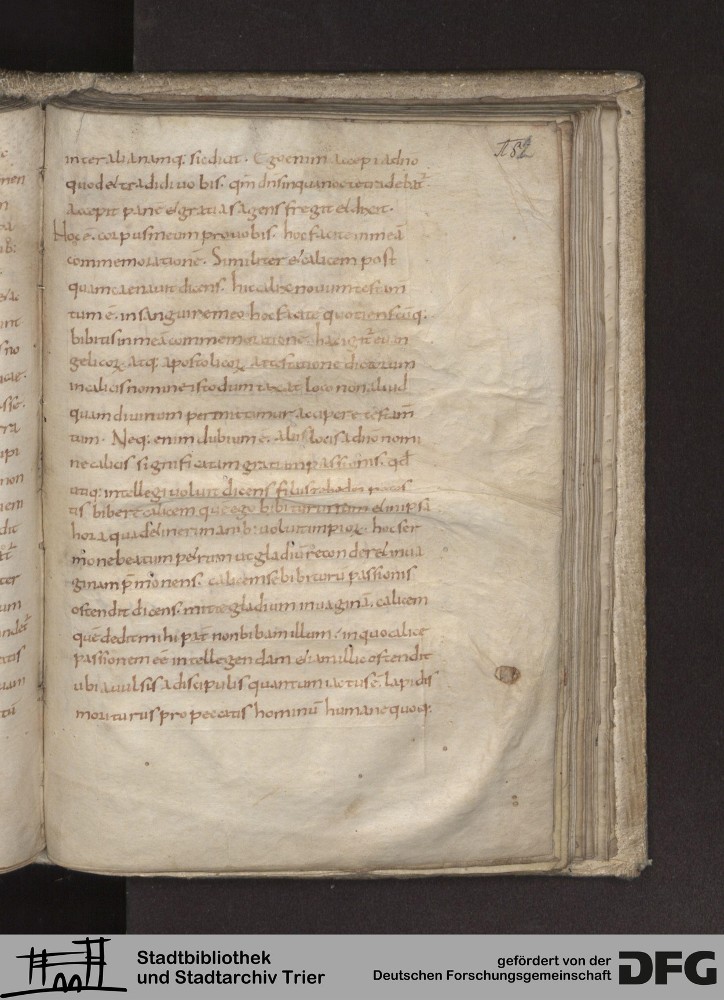 182
inter alia namq; sic dicit. Ego enim accepi a dño
quod et tradidi uobis. qm̄ dñs in qua nocte tradebat̄
accepit panē et gratias agens fregit et dixit.
Hoc ē. corpus meum pro uobis. hoc facite in meā
commemorationē. Similiter et calicem post
quam caenauit dicens. hic calix nouum testam
tum ē. in sanguine meo hoc facite quotienscūq;
bibitis in meā commemorationē. hac igit̄ euan
gelicoꝝ. atq; apostolicoꝝ attestatione dictorum
in calicis nomine isto dum taxat loco non aliud
quam diuinum permittimur accipere testam̄
tum. Neq; enim dubium ē. aliis locis a dño nomi
ne calicis significatam gratiam passionis. qđ
utiq; intellegi uoluit dicens filiis
tis bibere calicem quē ego bibiturus sum et in ipsa
hora qua detineri manib; uoluit impioꝝ. hoc ser
mone beatum petrum ut gladiū reconderet in ua
ginam p̄monens. calicem se bibiturū passionis
ostendit dicens. mitte gladium in uaginā. calicem
quē dedit mihi pat̄ non bibam illum. in quo calice
passionem eē intellegendam etiam illic ostendit
ubi auulsus a discipulis quantum iactus ē. lapidis
moriturus pro peccatis hominū humane quoq;
Stadtbibliothek
und Stadtarchiv Trier
gefördert von der
Deutschen Forschungsgemeinschaft
DFG